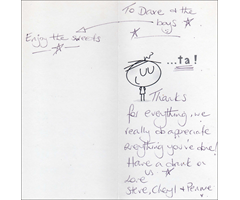 To Dave & the
boys
Enjoy the sweets
...ta!
Thanks
for everything, we
really do appreciate
everything you've done!
Have a drink on
us
Love
Steve, Cheryl &